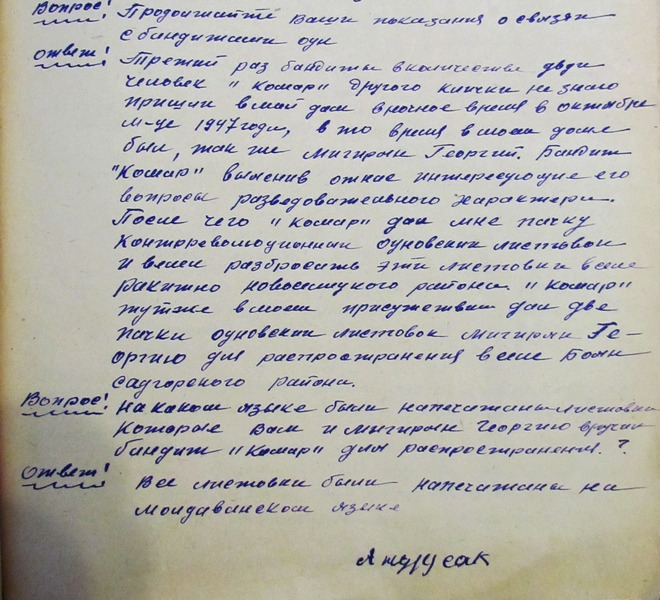 Вопрос! Продолжайте Ваши показания о связях
с бандитами оун
ответ! Третий раз бандиты в количестве двух
человек "Комар" другого клички не знаю
пришли в мой дом в ночное время в октябре
м-це 1947 года, в то время в моем доме
был, так же Мигирян Георгий. Бандит
"Комар" выяснив от нас интересующие его
вопросы разведовательного характера.
После чего "Комар" дал мне пачку
Контрреволюционных оуновских листовок
и велел разбросать эти листовки в селе
Ракитно новоселицкого района. "Комар"
тут же в моем присутствии дал две
пачки оуновских листовок Мигирян Ге-
оргию для распространения в селе Боян
садгорского района.
Вопрос! На каком языке были напечатаны листовки
которые Вам и Мигирян Георгию вручал
бандит "Комар" для распространения. ?
Ответ! Все листовки были напечатаны на
Молдаванском языке